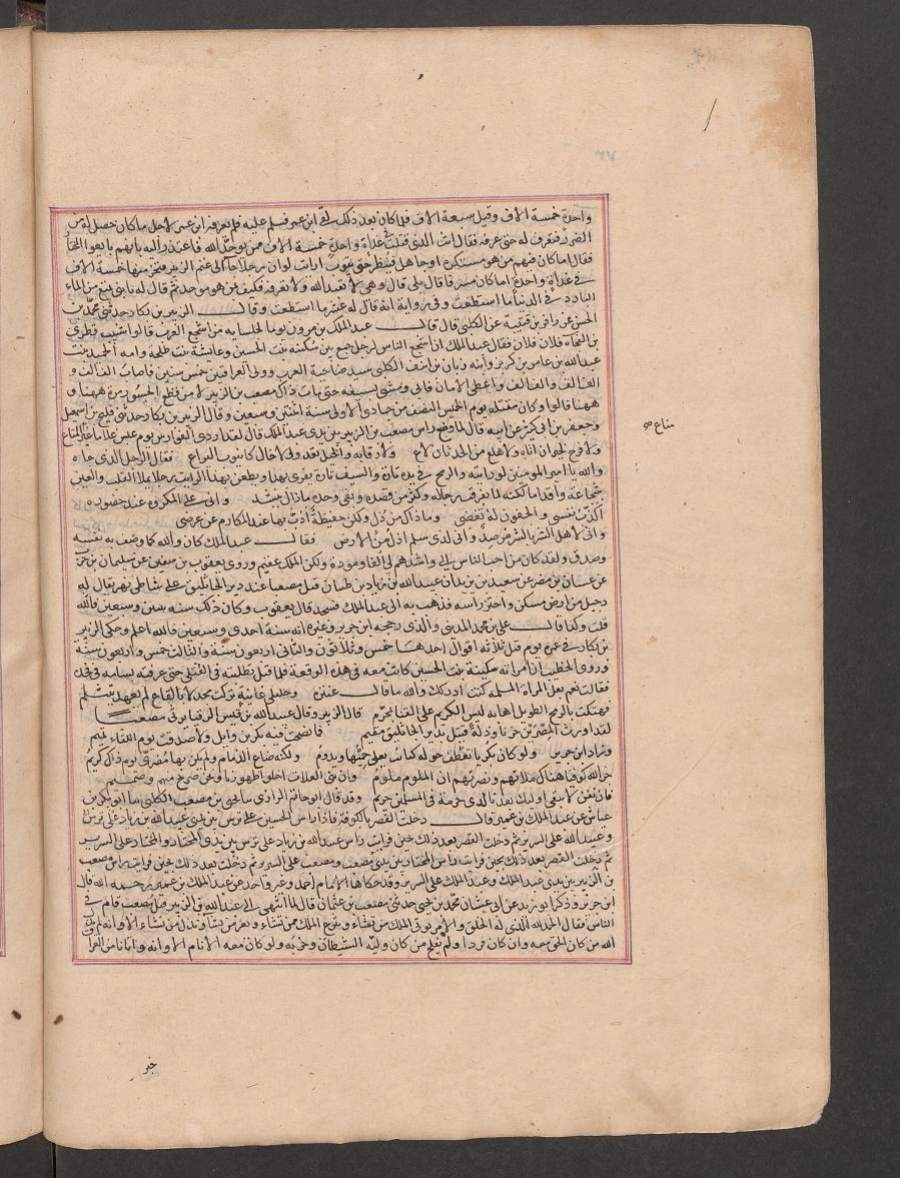 واحدة خمسة الاف وقيل سبعة الاف فلما كان بعد ذلك لقى ابن عمر فسلم عليه فلم يعرفه ابن عمر لاجل ما كان حصل له من
الضرر فتعرف له حتى عرفه فقال انت الذى قتلت غداة واحدة خمسة الاف ممن يوحد الله فاعتذر اليه بانهم بايعوا المختار
فقال اما كان فيهم من هو مستكره او جاهل فينظر حتى يتوب ارايت لو ان رجلا جا الى غنم الزبير فنحر منها خمسة الاف
فى غداة واحدة اما كان مسرفا قال بلى قال وهى لا تعبد الله ولا تعرفه فكيف بمن هو موحد ثم قال له يا بنى تمتع من الماء
البارد فى الدنيا ما استطعت وفى رواية انه قال له عش ما استطعت وقال الزبير بن بكار حدثنى محمد بن
الحسن عن زافر بن قتيبة عن الكلبى قال قال عبد الملك بن مرون يوما لجلسايه من اشجع العرب قالوا شبيب قطرى
بن الفجاه فلان فلان فقال عبد الملك ان اشجع الناس لرجل جمع بين سكينه بنت الحسين وعايشة بنت طلحة وامه الحميد بنت
عبد الله بن عامر بن كريز وابنه ريان بن انيف الكلبى سيد ضاحية العرب وولى العراقين خمس سنين فاصاب الف الف و
الف الف والف الف واعطى الامان فابى ومشى بسيفه حتى مات ذاك مصعب بن الزبير لا من قطع الجسور مرة ههنا و
ههنا قالوا وكان مقتله يوم الخميس النصف من جمادى الاولى سنة اثنتين وسبعين وقال الزبير بن بكار حدثنى فليح بن اسمعيل
وجعفر بن ابى كثير عن ابيه قال لما وضع راس مصعب بن الزبير بين يدى عبد الملك قال لقد اردى الفوارس يوم عبس غلاما غير مناع المتاع
ولا فرح لخير ان اتاه ولا هلع من الحدثان لاع ولا وقابه والخيل تعدو ولا خال كانبوب اليراع فقال الرجل الذى جاه
والله يا امير المومنين لو رايته والرمح فى يده تارة والسيف تارة يفرى بهذا ويطعن بهذا لرايت رجلا يملا القلب والعين
شجاعة واقداما لكنه لما تفرقت رجاله وكثر من قصده وبقى وحده ما زال ينشد وانى على المكروه عند حضوره
اكذب نفسى والجفون له تغضى وما ذاك من ذل ولكن حفيظة اذب بها عند المكارم عن عرضى
وانى لاهل الشر بالشر مرصد وانى لذى سلم اذل من الارض فقال عبد الملك كان والله كما وصف به نفسه
وصدق ولقد كان من احب الناس الى واشدهم لى الفا ومودة ولكن الملك عقيم وروى يعقوب بن سفين عن سليمان بن حرب
عن غسان بن مضر عن سعيد بن يزيد ان عبيد الله بن زياد بن ظبيان قتل مصعبا عند دير الجاثليق على شاطى نهر يقال له
دجيل من ارض مسكن واحتز راسه فذهب به الى عبد الملك فسجد قال يعقوب وكان ذلك سنه ثنتين وسبعين فالله
قلت وكذا قال على بن محمد المدينى والذى رجحه ابن جرير وغيره انه سنة احدى وسبعين فالله اعلم وحكى الزبير
بن بكار فى عمره يوم قتل ثلاثه اقوال احدها خمس وثلاثون والثانى اربعون سنة والثالث خمس واربعون سنة
وروى الخطيب ان امراته سكينة بنت الحسين كانت معه فى هذه الوقعة فلما قتل تطلبته فى القتلى حتى عرفته بشامه فى فخده
فقالت نعم بعل المراة المسلمه كنت ادركك والله ما قال عنتره وحليل غانية تركت مجدلا بالقاع لم يعهد ولم يتثلم
فهتكت بالرمح الطويل اهابه ليس الكريم على القنا بمحرم قال الزبير وقال عبيد الله بن قيس الرقيات يرثى مصعبا
لقد اورث المصرين حزنا وذلة قتيل بدير الجاثليق مقيم فما نصحت فيه بكر بن وايل ولا صدقت يوم اللقاء تميم
وزاد ابن جرير ولو كان بكريا تعطف حوله كتائب يغلى حميها ويدوم ولكنه ضاع الذمام ولم يكن بها مضرى يوم ذاك كريم
جزا الله كوفيا هناك ملامة وبصريهم ان الملوم ملوم وان بنى العلات اخلوا ظهورنا ونحن صريح بينهم وصميم
فان نفن لا يبقى اوليك بعدنا لذى حرمة فى المسلمين حريم وقد قال ابو حاتم الرازى نا يحيى بن مصعب الكلبى نا ابو بكر بن
عياش عن عبد الملك بن عمير قال دخلت القصر بالكوفة فاذا راس الحسين على ترس بين يدى عبيد الله بن زياد على ترس
وعبيد الله على السرير ثم دخلت القصر بعد ذلك حين فرايت راس عبيد الله بن زياد على ترس بين يدى المختار والمختار على السرير
ثم دخلت القصر بعد ذلك بحين فرايت راس المختار بين يدى مصعب ومصعب على السرير ثم دخلت بعد ذلك حين فرايت راس مصعب
بن الزبير بين يدى عبد الملك وعبد الملك على السرير وقد حكاها الامام احمد وغير واحد عن عبد الملك بن عمير رحمه الله قال
ابن جرير وذكر ابو زيد عن ابى غسان محمد بن يحيى حدثنى مصعب بن عثمان قال لما انتهى الى عبد الله بن الزبير قتل مصعب قام فى
الناس فقال الحمد لله الذى له الخلق والامر يوتى الملك من تشاء وينزع الملك ممن تشاء ويعز من يشا ويذل من يشاء الا وانه لم يذل
الله من كان الحق معه وان كان فردا ولم يفلح من كان وليه الشيطان وحزبه ولو كان معه الانام الا وانه واتانا من العراق
مناع صح
خبر